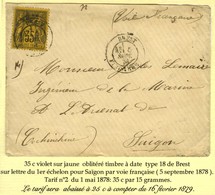 Voie Française
BREST
Monsieur
à l'Arsenal de
Saigon
35 c violet sur jaune oblitéré timbre à date type 18 de Brest
sur lettre du 1er échelon pour Saigon par voie française ( 5 septembre 1878 ).
Tarif n°2 du 1 mai 1878: 35 c par 15 grammes.
Le tarif sera abaissé à 25 c à compter du 16 février 1879.